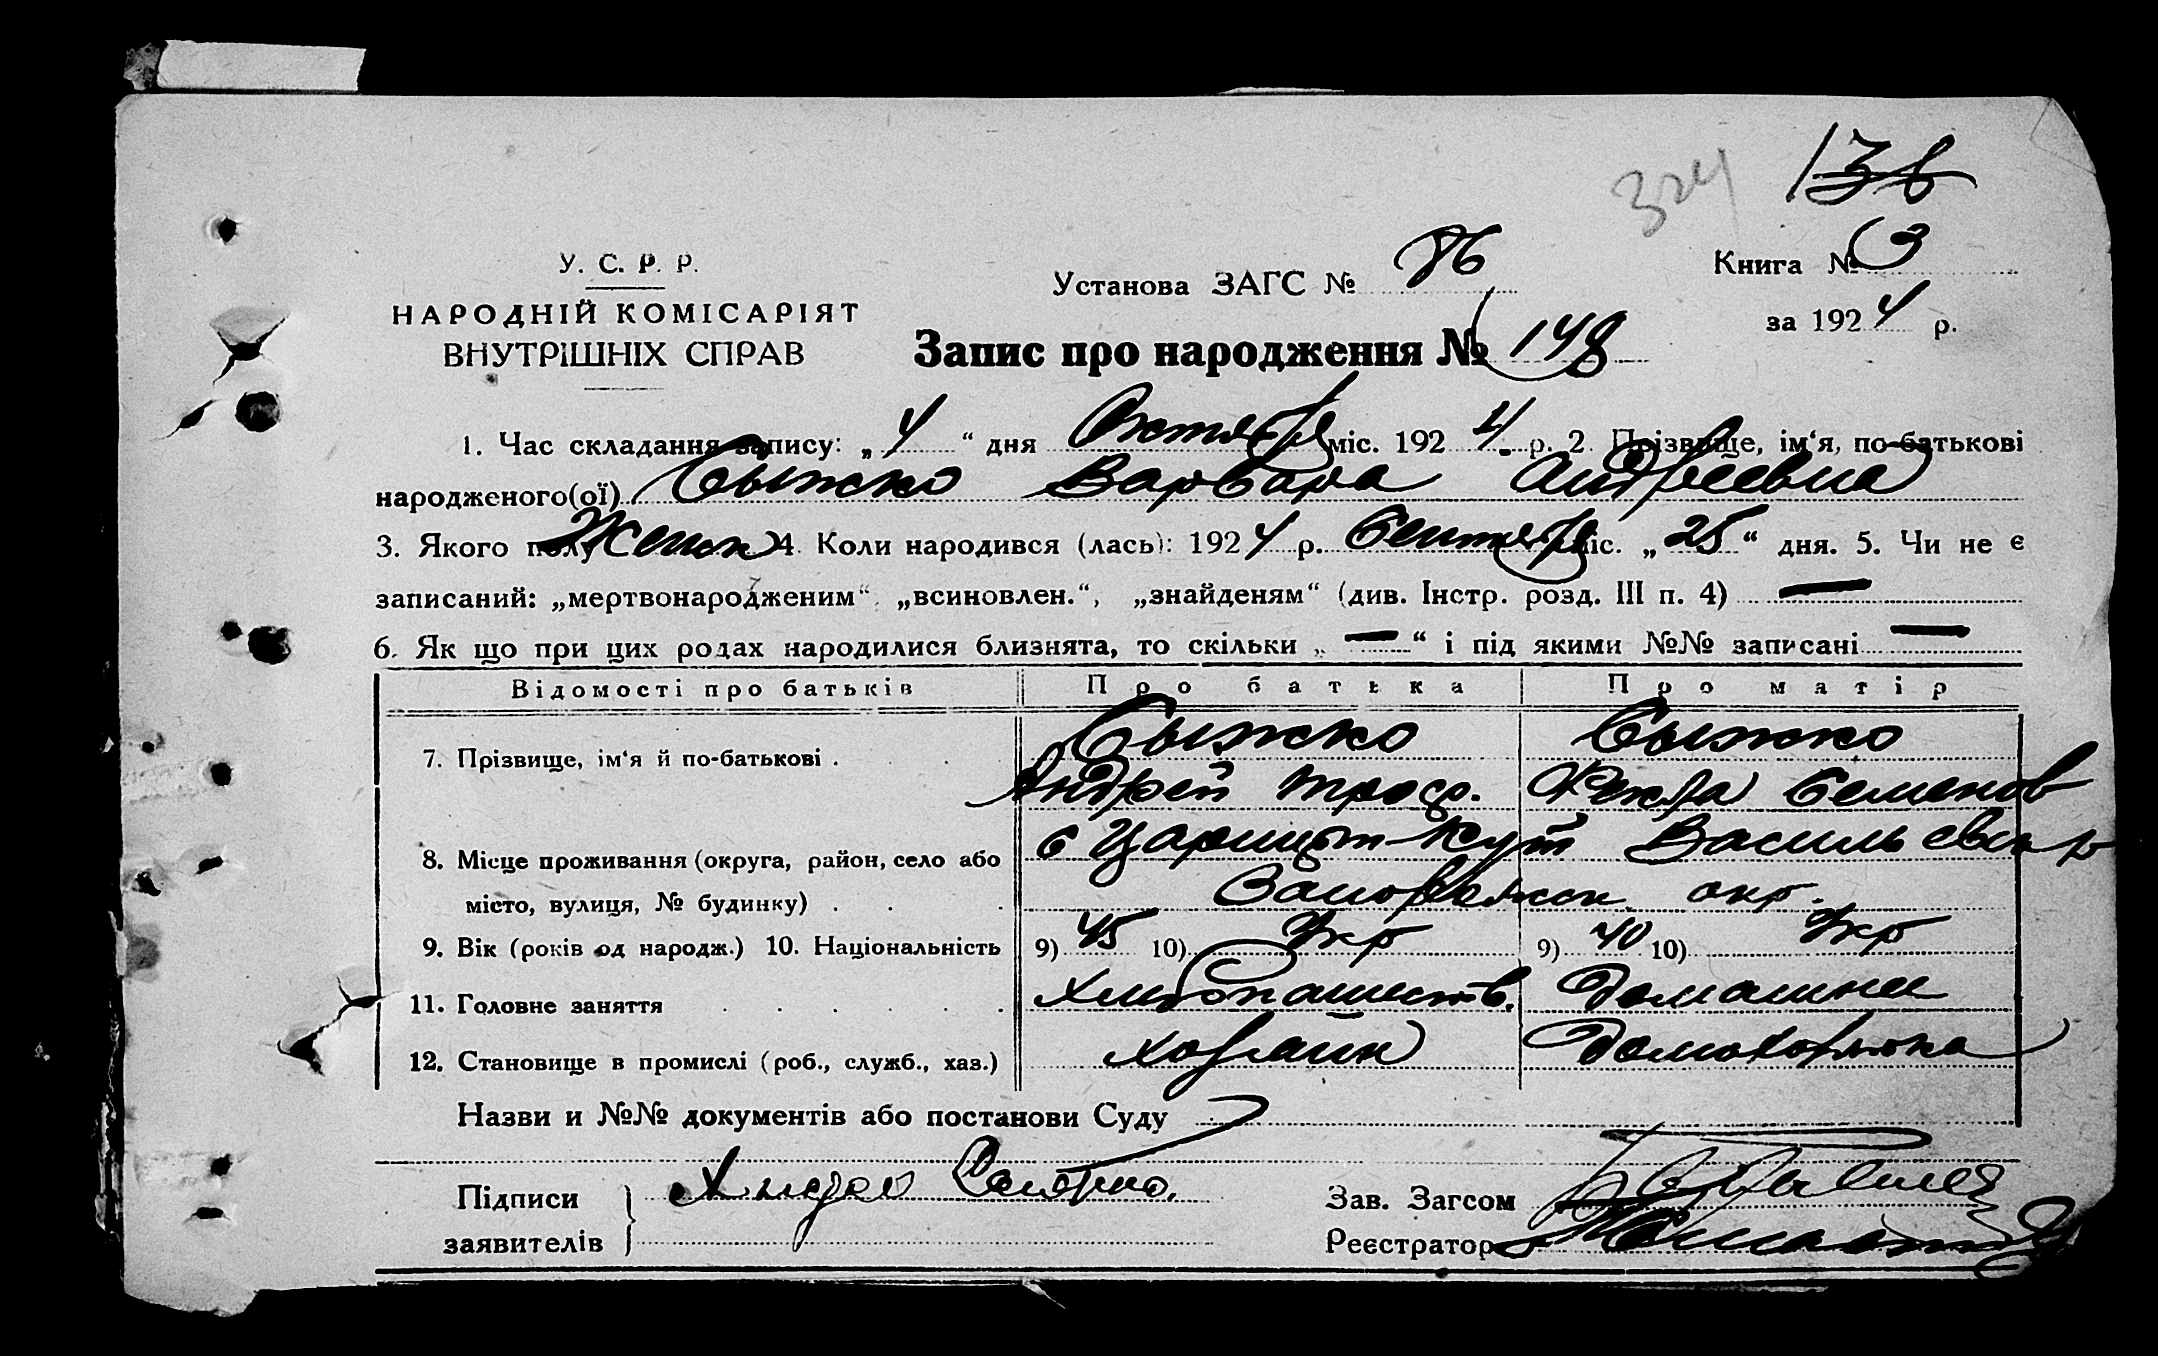 324 136
У. С. Р. Р.
НАРОДНІЙ КОМІСАРІЯТ
ВНУТРІШНІХ СПРАВ
Установа ЗАГС № 86
Книга № 3
за 1924 р.
Запис про народження № 148
1. Час складання запису: „4“ дня Октября міс. 1924 р. 2. Прізвище, ім‘я, по-батькові
народженого(ої) Сыжко Варвара Андреевна
3. Якого полу Женск 4. Коли народився (лась): 1924 р. Сентября міс. „25“ дня. 5. Чи не є
записаний: „мертвонародженим“, „всиновлен.“, „знайденям“ (див. Інстр. розд. III п. 4) —
6. Як що при цих родах народилися близнята, то скільки „—“ і під якими №№ записані —
Відомості про батьків Про батька Про матір
7. Прізвище, ім‘я й по-батькові . Сыжко Сыжко
Андрей Троф. Фекла Семенов
8. Місце проживання (округа, район, село або с Царицын-Кут Васильевск р
місто, вулиця, № будинку) . Запорожск. окр.
9. Вік (років од народж.) 10. Національність 9) 45 10) Укр 9) 40 10) Укр
11. Головне заняття Хлебопашеств. Домашнее
12. Становище в промислі (роб., служб., хаз.) хозяин Домохозяйка
Назви и №№ документів або постанови Суду
Підписи
заявителів
Зав. Загсом
Реєстратор